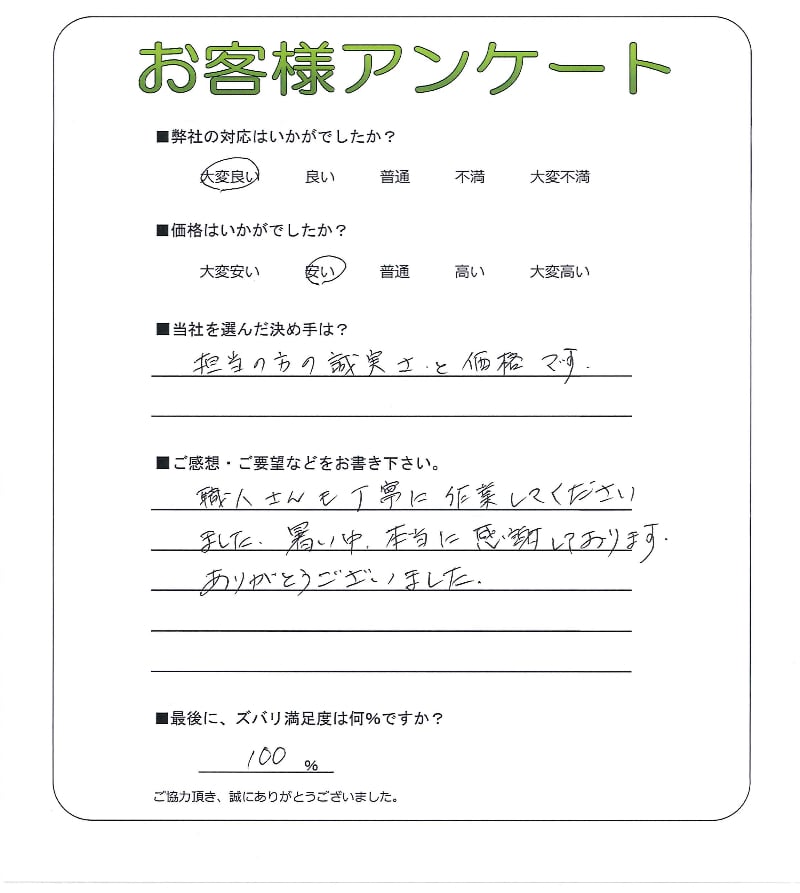 お客様アンケート
■弊社の対応はいかがでしたか？
大変良い 良い 普通 不満 大変不満
■価格はいかがでしたか？
大変安い 安い 普通 高い 大変高い
■当社を選んだ決め手は？
担当の方の誠実さ、と価格です。
■ご感想・ご要望などをお書き下さい。
職人さんも丁寧に作業してください
ました。暑い中、本当に感謝しております。
ありがとうございました。
■最後に、ズバリ満足度は何%ですか？
100 %
ご協力頂き、誠にありがとうございました。